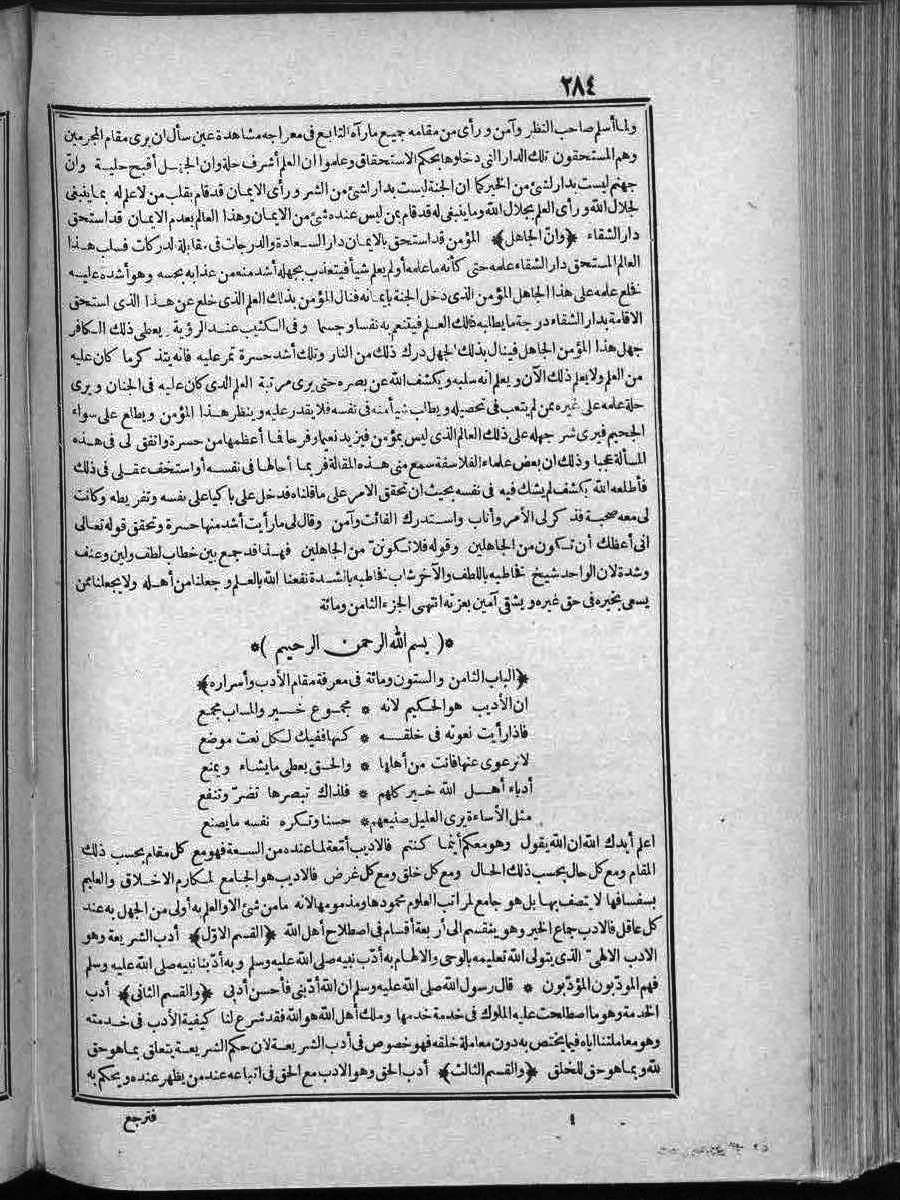 ٢٨٤
ولما أسلم صاحب النظر وآمن ورأى من مقامه جميع ما رآه التابع فى معراجه مشاهدة عين سأل ان يرى مقام المجرمين
وهم المستحقون تلك الدار التى دخلوها بحكم الاستحقاق وعلموا ان العلم أشرف حلة وان الجهل أقبح حلية وانّ
جهنم ليست بدار لشئ من الخير كما ان الجنة ليست بدار لشئ من الشر ورأى الايمان قد قام بقلب من لا علم له بما ينبغى
لجلال الله ورأى العلم بجلال الله وما ينبغى له قد قام بمن ليس عنده شئ من الايمان وهذا العالم بعدم الايمان قد استحق
دار الشقاء ﴿وانّ الجاهل﴾ المؤمن قد استحق بالايمان دار السعادة والدرجات فى مقابلة الدركات فسلب هذا
العالم المستحق دار الشقاء علمه حتى كأنه ما علمه أو لم يعلم شيأ فيتعذب بجهله أشد منه من عذابه بحسه وهو أشده عليه
فخلع علمه على هذا الجاهل المؤمن الذى دخل الجنة بايمانه فنال المؤمن بذلك العلم الذى خلع عن هذا الذى استحق
الاقامة بدار الشقاء درجة ما يطلبه ذلك العلم فيتنعم به نفسا وجسما وفى الكثيب عند الرؤية يعطى ذلك الكافر
جهل هذا المؤمن الجاهل فينال بذلك الجهل درك ذلك من النار وتلك أشد حسرة تمر عليه فانه يتذكر ما كان عليه
من العلم ولا يعلم ذلك الآن ويعلم انه سلبه ويكشف الله عن بصره حتى يرى مرتبة العلم الذى كان عليه فى الجنان ويرى
حلة علمه على غيره ممن لم يتعب فى تحصيله ويطلب شيأ منه فى نفسه فلا يقدر عليه وينظر هذا المؤمن ويطلع على سواء
الجحيم فيرى شر جهله على ذلك العالم الذى ليس بمؤمن فيزيد نعيما وفرحا فما أعظمها من حسرة واتفق لى فى هذه
المسألة عجبا وذلك ان بعض علماء الفلاسفة سمع منى هذه المقالة فربما أحالها فى نفسه أو استخف عقلى فى ذلك
فأطلعه الله بكشف لم يشك فيه فى نفسه بحيث ان تحقق الامر على ما قلناه فدخل على باكيا على نفسه وتفريطه وكانت
لى معه صحبة فذكر لى الأمر وأناب واستدرك الفائت وآمن وقال لى ما رأيت أشد منها حسرة وتحقق قوله تعالى
انى أعظك أن تكون من الجاهلين وقوله فلا تكوننّ من الجاهلين فهذا قد جمع بين خطاب لطف ولين وعنف
وشدة لان الواحد شيخ فخاطبه باللطف والآخر شاب فخاطبه بالشدة نفعنا الله بالعلم وجعلنا من أهله ولا يجعلنا ممن
يسعى بخيره فى حق غيره ويشقى آمين بعزته انتهى الجزء الثامن ومائة
*( بسم الله الرحمن الرحيم )*
﴿الباب الثامن والستون ومائة فى معرفة مقام الأدب وأسراره﴾
ان الأديب هو الحكيم لانه * مجموع خير والمداب مجمع
فاذا رأيت نعوته فى خلقه * كنها ففيك لكل نعت موضع
لا ترعوى عنها فانت من أهلها * والحق يعطى ما يشاء ويمنع
أدباء أهل الله خير كلهم * فلذاك تبصرها تضرّ وتنفع
مثل الأساءة يرى العليل صنيعهم * حسنا وتكره نفسه ما يصنع
اعلم أيدك الله ان الله يقول وهو معكم أينما كنتم فالاديب أمتعة لما عنده من السعة فهو مع كل مقام بحسب ذلك
المقام ومع كل حال بحسب ذلك الحال ومع كل خلق ومع كل غرض فالاديب هو الجامع لمكارم الاخلاق والعليم
بسفسافها لا يتصف بها بل هو جامع لمراتب العلوم محمودها ومذمومها لانه ما من شئ الا والعلم به أولى من الجهل به عند
كل عاقل فالادب جماع الخير وهو ينقسم الى أربعة أقسام فى اصطلاح أهل الله ﴿القسم الاوّل﴾ أدب الشريعة وهو
الادب الالهىّ الذى يتولى الله تعليمه بالوحى والالهام به أدّب نبيه صلى الله عليه وسلم وبه أدّبنا نبيه صلى الله عليه وسلم
فهم المؤدّبون المؤدّبون * قال رسول الله صلى الله عليه وسلم ان الله أدّبنى فأحسن أدبى ﴿والقسم الثانى﴾ أدب
الخدمة وهو ما اصطلحت عليه الملوك فى خدمة خدمها وملك أهل الله هو الله فقد شرع لنا كيفية الأدب فى خدمته
وهو معاملتنا اياه فيما يختص به دون معاملة خلقه فهو خصوص فى أدب الشريعة لان حكم الشريعة يتعلق بما هو حق
لله وبما هو حق للخلق ﴿والقسم الثالث﴾ أدب الحق وهو الادب مع الحق فى اتباعه عند من يظهر عنده ويحكم به
فترجع